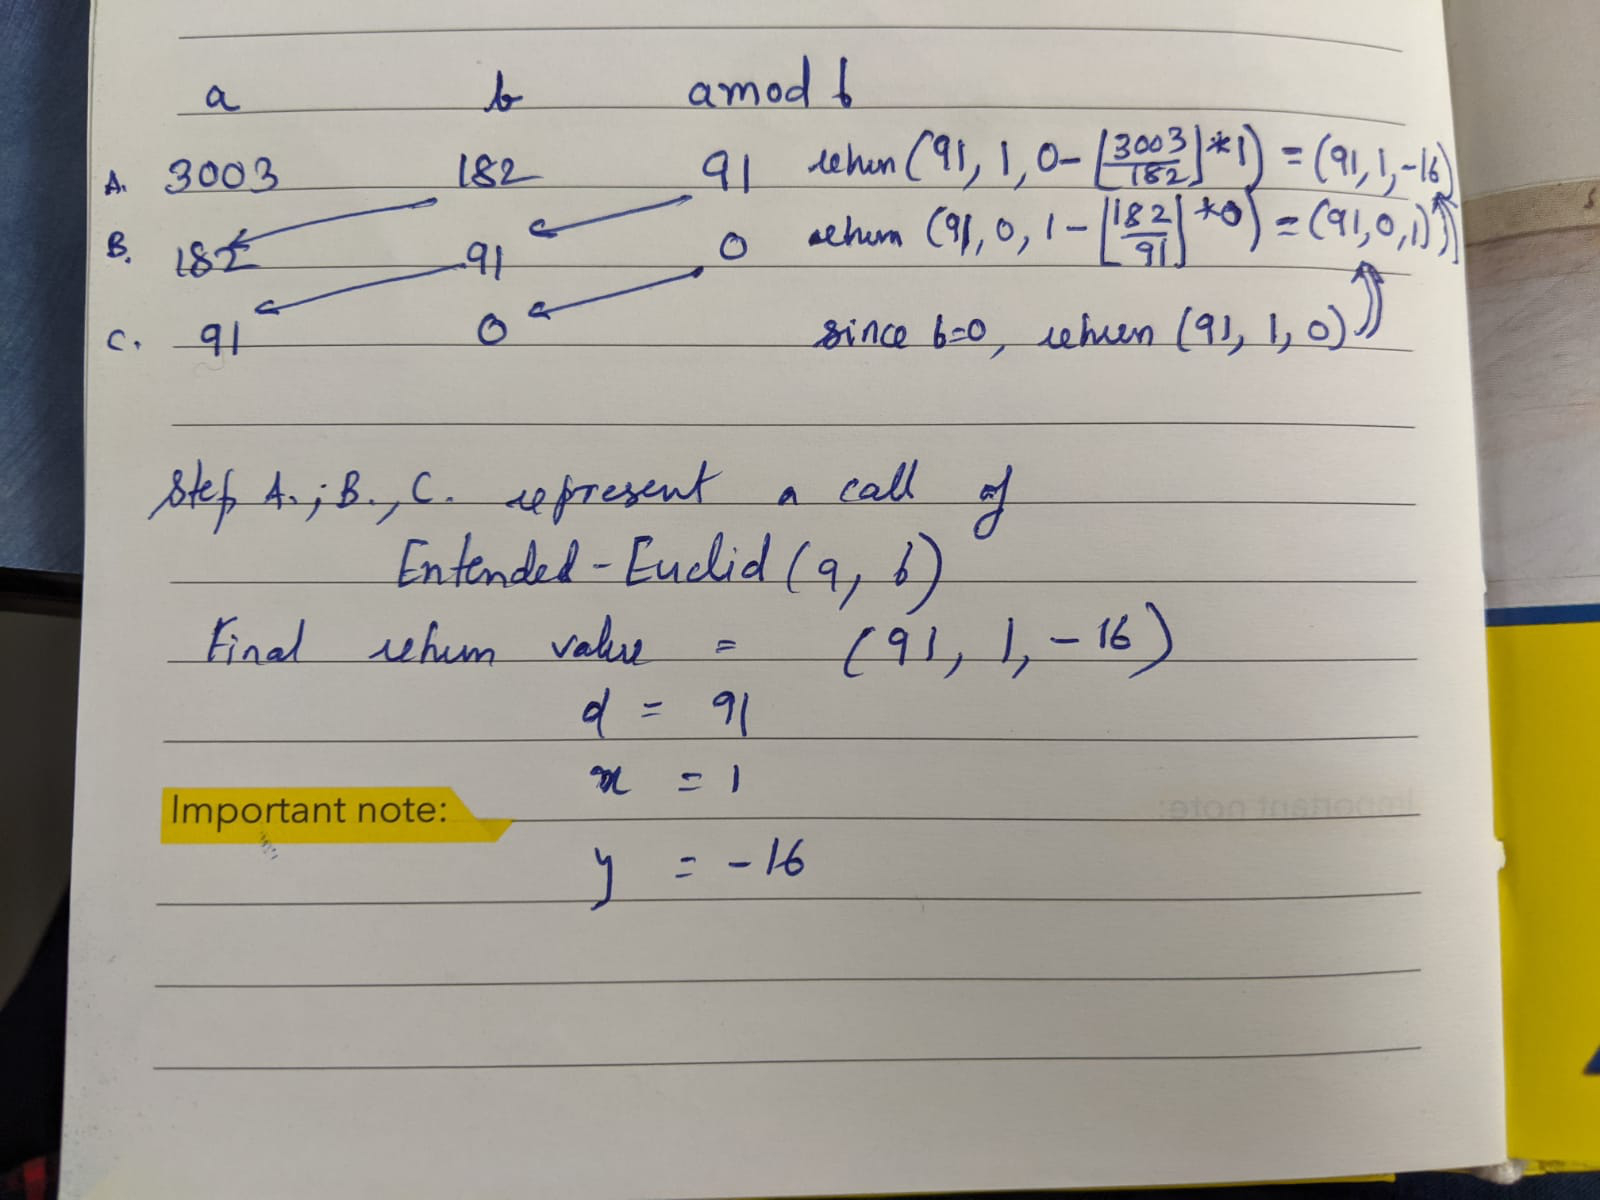 a b a mod b
A. 3003 182 91 return (91, 1, 0-⌊3003/182⌋*1) = (91, 1, -16)
B. 182 91 0 return (91, 0, 1-⌊182/91⌋*0) = (91, 0, 1)
C. 91 0 since b=0, return (91, 1, 0)
Step A.; B., C. represent a call of
Entended-Euclid (a, b)
Final return value = (91, 1, -16)
d = 91
x = 1
Important note:
y = -16